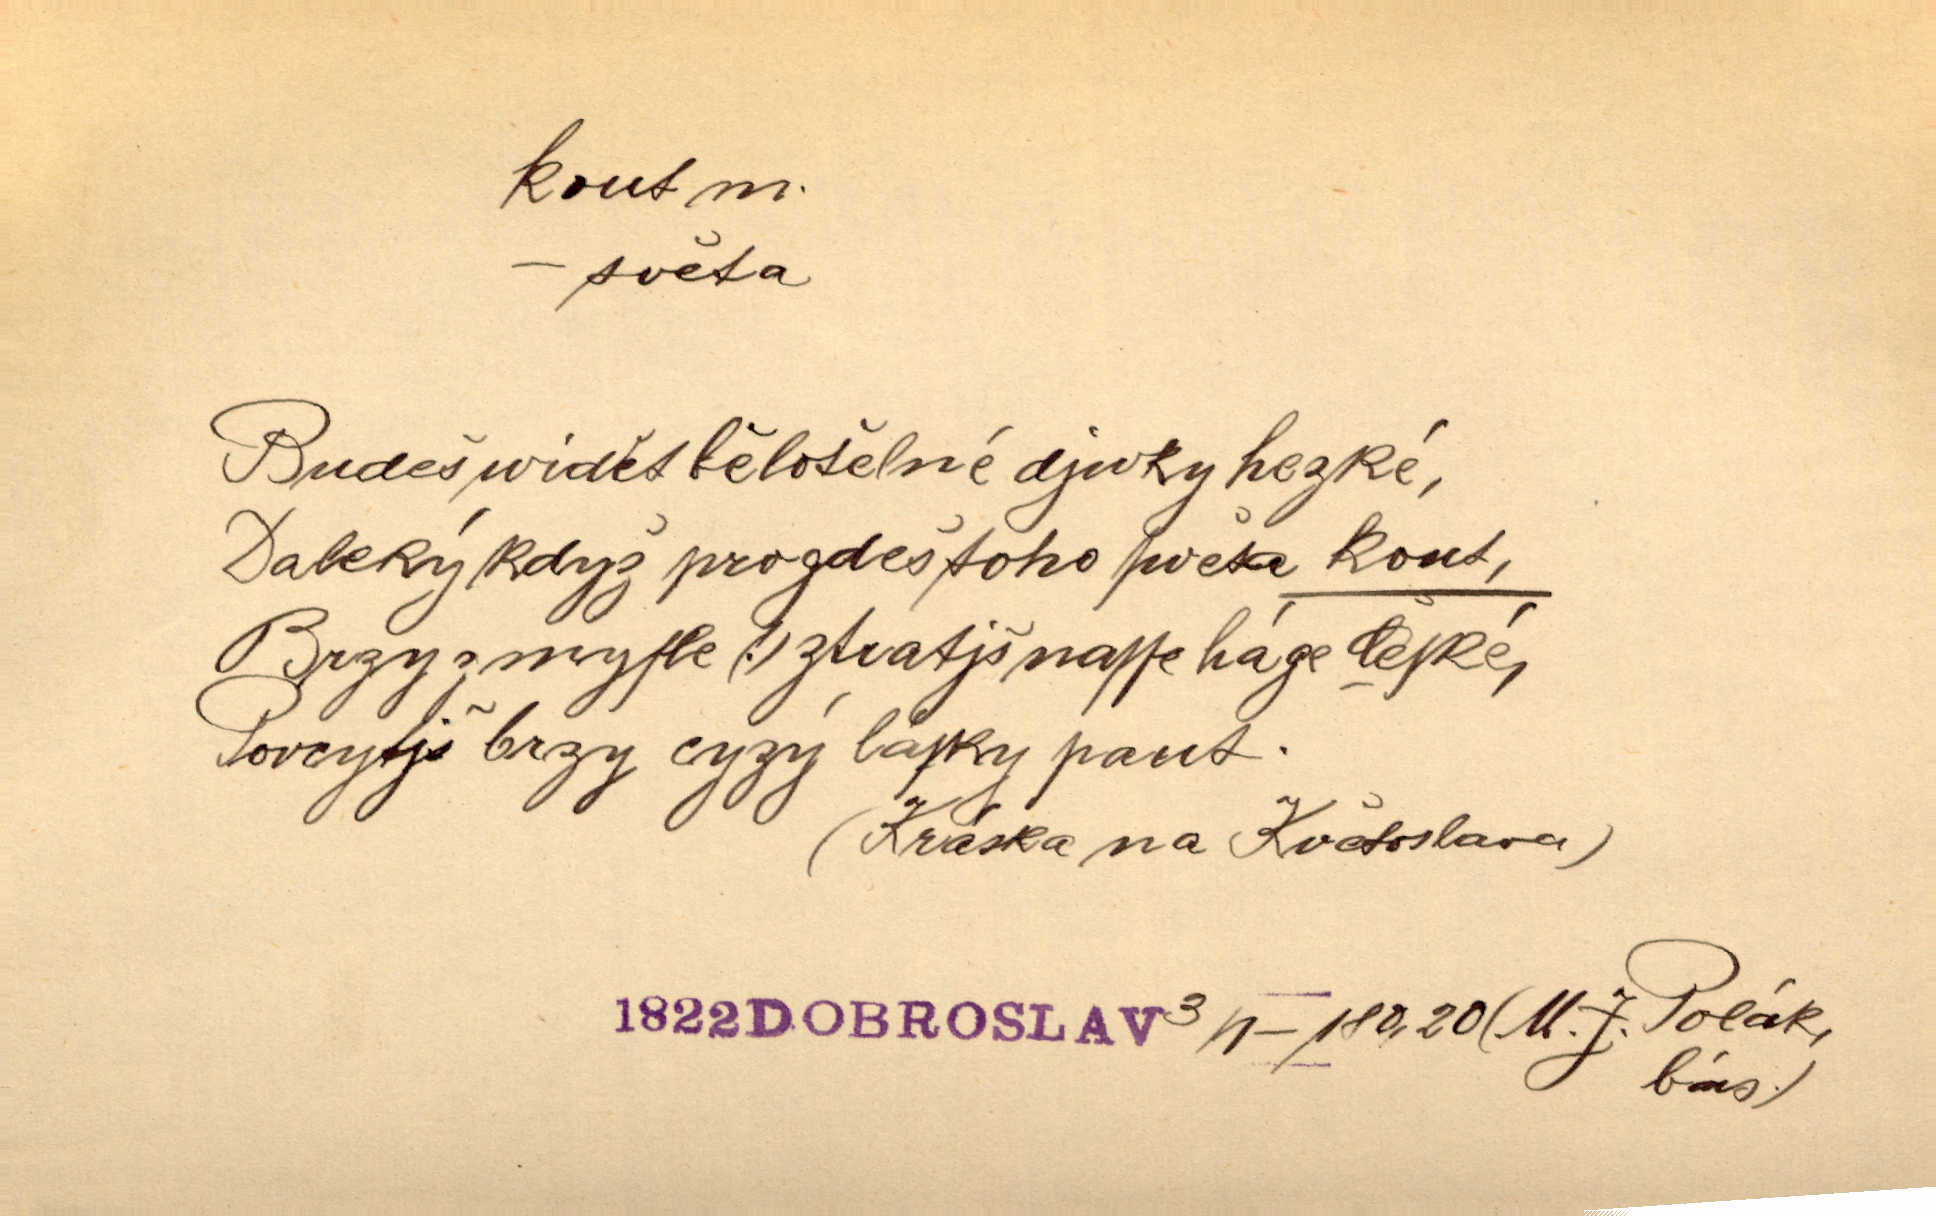 kout m.
— světa
Budeš widět běločelné djwky hezké,
Daleký když progdeš toho ſwěta kout,
Brzy z myſle (!) ztratjš naſſe háge čeſké,
Pocytjš brzy cyzý láſky paut.
(Kráska na Květoslava)
1822 DOBROSLAV 3/1 — 180, 20 (M. J. Polák,
bás.)